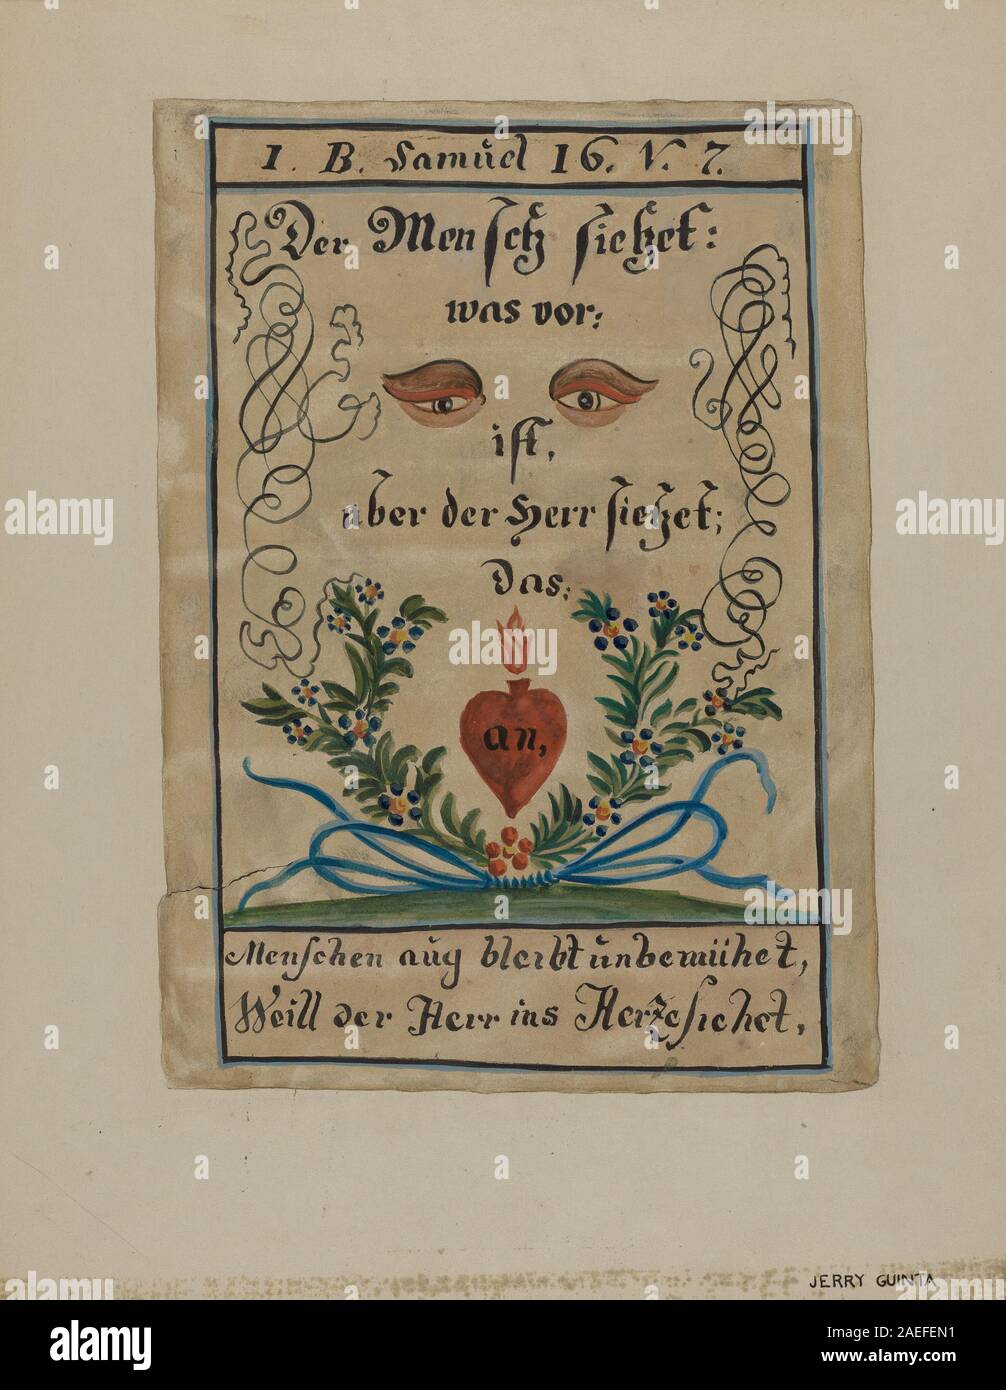 1. B. Samuel 16. V. 7.
Der Mensch siehet:
was vor:
ist,
aber der Herr siehet;
Das:
an,
Menschen aug bleibt unbemühet,
Weill der Herr ins Herze siehet,
JERRY GUINTA
alamy
Image ID: 2AEFEN1
www.alamy.com